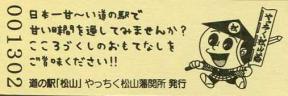 001302
日本一甘〜い道の駅で
甘い時間を過してみませんか?
こころづくしのおもてなしを
ご賞味ください!!
道の駅「松山」 やっちく松山藩関所 発行